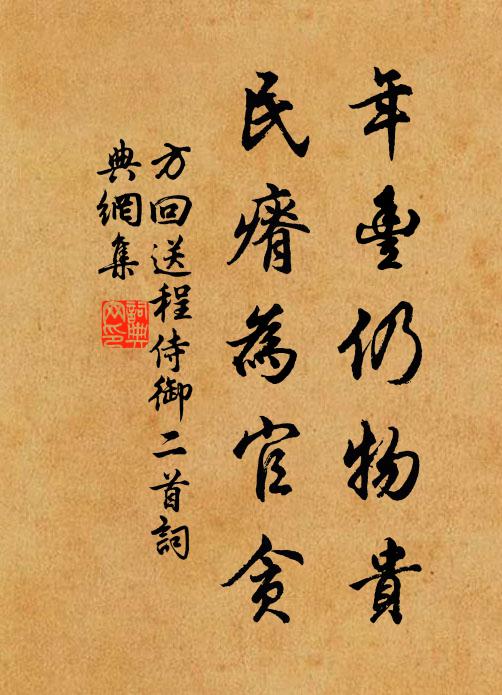 年豐仍物貴
民瘠為官貪
方回送程侍御二首詞
典網集
詞典
网印